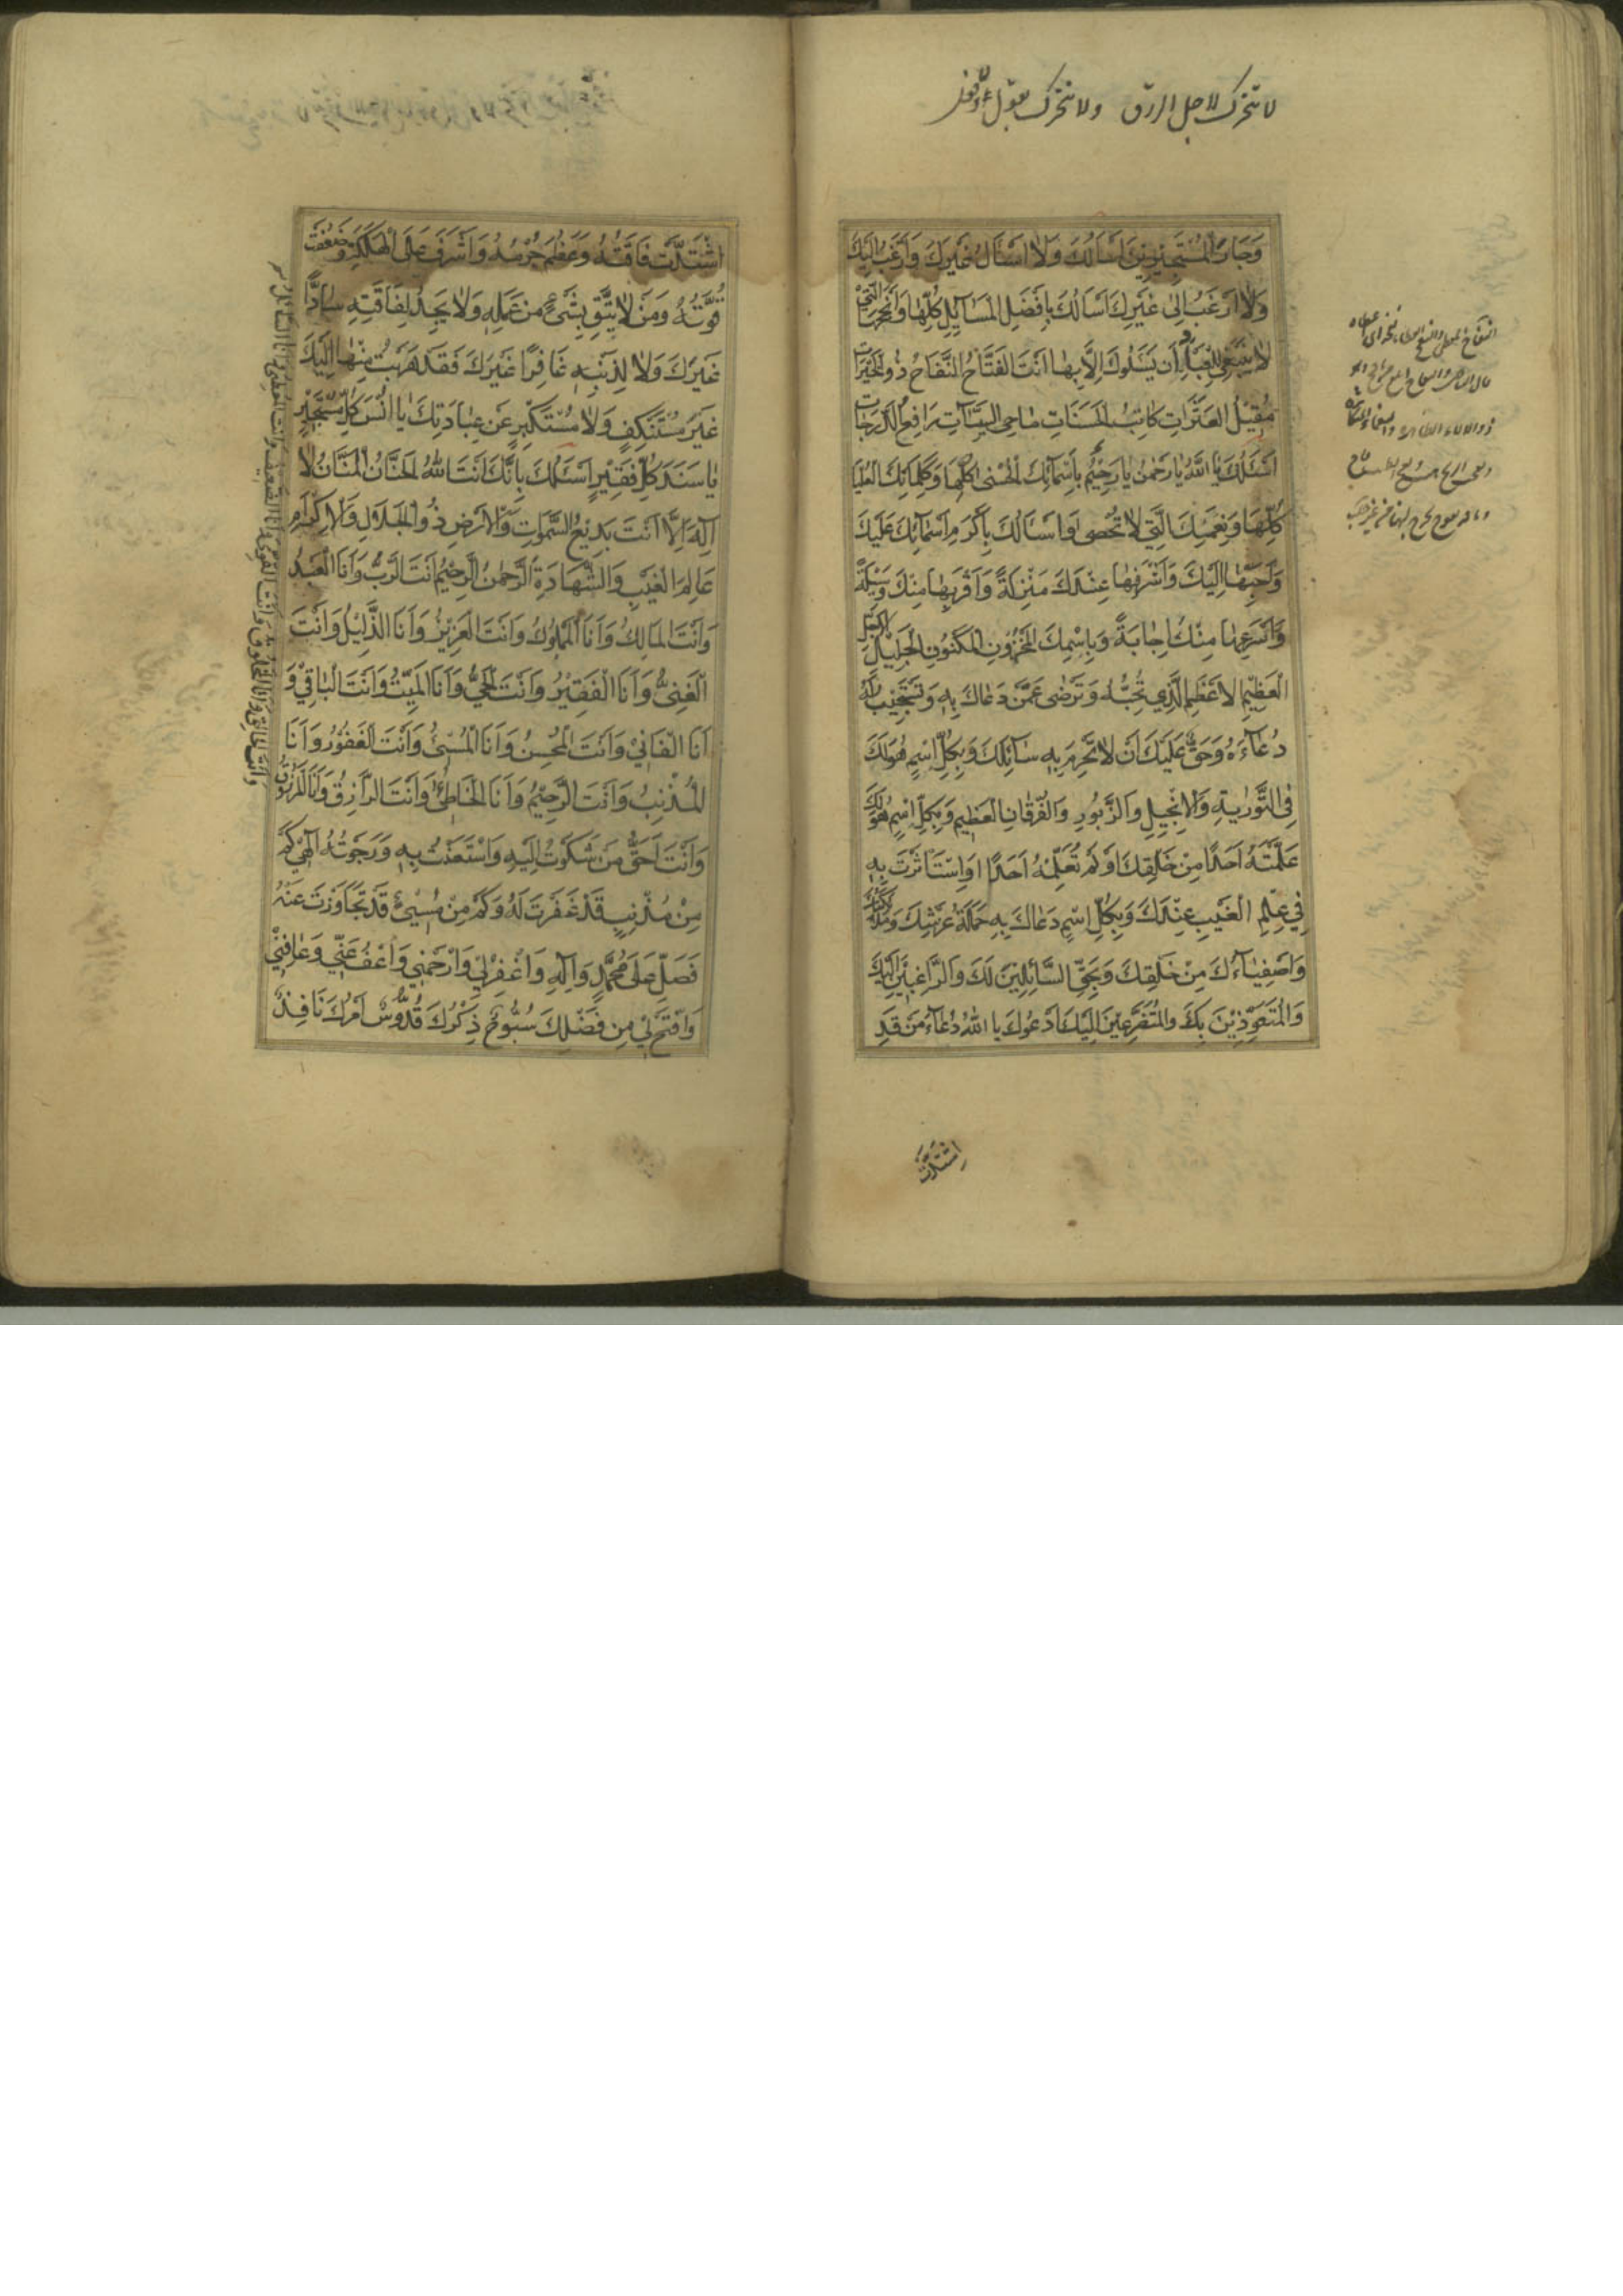 لا تتحرك لاجل الرزق ولا تتحرك
وَجَارَ الْمُسْتَجِيرِينَ اَسْأَلُكَ وَلَا اَسْأَلُ غَيْرَكَ وَاَرْغَبُ اِلَيْكَ
وَلَا اَرْغَبُ اِلٰى غَيْرِكَ اَسْأَلُكَ بِاَفْضَلِ الْمَسَآئِلِ كُلِّهَا وَاَنْجَحِهَا الَّتِي
لَا يَنْبَغِي لِلْعِبَادِ اَنْ يَسْئَلُوكَ اِلَّا بِهَا اَنْتَ الْفَتَّاحُ النَّفَّاحُ ذُو الْخَيْرَاتِ
مُقِيلُ الْعَثَرَاتِ كَاتِبُ الْحَسَنَاتِ مَاحِي السَّيِّئَاتِ رَافِعُ الدَّرَجَاتِ
اَسْئَلُكَ يَا اَللّٰهُ يَا رَحْمٰنُ يَا رَحِيمُ بِاَسْمَآئِكَ الْحُسْنٰى كُلِّهَا وَكَلِمَاتِكَ الْعُلْيَا
كُلِّهَا وَنِعَمِكَ الَّتِي لَا تُحْصٰى وَاَسْأَلُكَ بِاَكْرَمِ اَسْمَآئِكَ عَلَيْكَ
وَاَحَبِّهَا اِلَيْكَ وَاَشْرَفِهَا عِنْدَكَ مَنْزِلَةً وَاَقْرَبِهَا مِنْكَ وَسِيلَةً
وَاَسْرَعِهَا مِنْكَ اِجَابَةً وَبِاِسْمِكَ الْمَخْزُونِ الْمَكْنُونِ الْجَلِيلِ
الْعَظِيمِ الْاَعْظَمِ الَّذِي تُحِبُّهُ وَتَرْضٰى عَمَّنْ دَعَاكَ بِهِ وَتَسْتَجِيبُ لَهُ
دُعَآءَهُ وَحَقٌّ عَلَيْكَ اَنْ لَا تَحْرِمَ بِهِ سَآئِلَكَ وَبِكُلِّ اِسْمٍ هُوَ لَكَ
فِي التَّوْرٰيةِ وَالْاِنْجِيلِ وَالزَّبُورِ وَالْفُرْقَانِ الْعَظِيمِ وَبِكُلِّ اِسْمٍ هُوَ لَكَ
عَلَّمْتَهُ اَحَدًا مِنْ خَلْقِكَ اَوْ لَمْ تُعَلِّمْهُ اَحَدًا اَوِ اسْتَاْثَرْتَ بِهِ
فِي عِلْمِ الْغَيْبِ عِنْدَكَ وَبِكُلِّ اِسْمٍ دَعَاكَ بِهِ حَمَلَةُ عَرْشِكَ وَمَلٰئِكَتُكَ
وَاَصْفِيَآءُكَ مِنْ خَلْقِكَ وَبِحَقِّ السَّآئِلِينَ لَكَ وَالرَّاغِبِينَ اِلَيْكَ
وَالْمُتَعَوِّذِينَ بِكَ وَالْمُتَضَرِّعِينَ اِلَيْكَ اَدْعُوكَ يَا اَللّٰهُ دُعَآءَ مَنْ قَدِ
اشْتَدَّتْ
اشْتَدَّتْ فَاقَتُهُ وَعَظُمَ جُرْمُهُ وَاَشْرَفَ عَلَى الْهَلَكَةِ وَضَعُفَتْ
قُوَّتُهُ وَمَنْ لَا يَثِقُ بِشَيْءٍ مِنْ عَمَلِهِ وَلَا يَجِدُ لِفَاقَتِهِ سَادًّا
غَيْرَكَ وَلَا لِذَنْبِهِ غَافِرًا غَيْرَكَ فَقَدْ هَرَبْتُ مِنْهَا اِلَيْكَ
غَيْرَ مُسْتَنْكِفٍ وَلَا مُسْتَكْبِرٍ عَنْ عِبَادَتِكَ يَا اُنْسَ كُلِّ مُسْتَجِيرٍ
يَا سَنَدَ كُلِّ فَقِيرٍ اَسْئَلُكَ بِاَنَّكَ اَنْتَ اللّٰهُ الْحَنَّانُ الْمَنَّانُ لَا
اِلٰهَ اِلَّا اَنْتَ بَدِيعُ السَّمٰوَاتِ وَالْاَرْضِ ذُو الْجَلَالِ وَالْاِكْرَامِ
عَالِمُ الْغَيْبِ وَالشَّهَادَةِ الرَّحْمٰنُ الرَّحِيمُ اَنْتَ الرَّبُّ وَاَنَا الْعَبْدُ
وَاَنْتَ الْمَالِكُ وَاَنَا الْمَمْلُوكُ وَاَنْتَ الْعَزِيزُ وَاَنَا الذَّلِيلُ وَاَنْتَ
الْغَنِيُّ وَاَنَا الْفَقِيرُ وَاَنْتَ الْحَيُّ وَاَنَا الْمَيِّتُ وَاَنْتَ الْبَاقِي وَ
اَنَا الْفَانِي وَاَنْتَ الْمُحْسِنُ وَاَنَا الْمُسِيءُ وَاَنْتَ الْغَفُورُ وَاَنَا
الْمُذْنِبُ وَاَنْتَ الرَّحِيمُ وَاَنَا الْخَاطِئُ وَاَنْتَ الرَّازِقُ وَاَنَا الْمَرْزُوقُ
وَاَنْتَ اَحَقُّ مَنْ شَكَوْتُ اِلَيْهِ وَاسْتَعَذْتُ بِهِ وَرَجَوْتُهُ اِلٰهِي كَمْ
مِنْ مُذْنِبٍ قَدْ غَفَرْتَ لَهُ وَكَمْ مِنْ مُسِيءٍ قَدْ تَجَاوَزْتَ عَنْهُ
فَصَلِّ عَلٰى مُحَمَّدٍ وَاٰلِهِ وَاغْفِرْ لِي وَارْحَمْنِي وَاعْفُ عَنِّي وَعَافِنِي
وَافْتَحْ لِي مِنْ فَضْلِكَ سُبُّوحٌ ذِكْرُكَ قُدُّوسٌ اَمْرُكَ نَافِذٌ